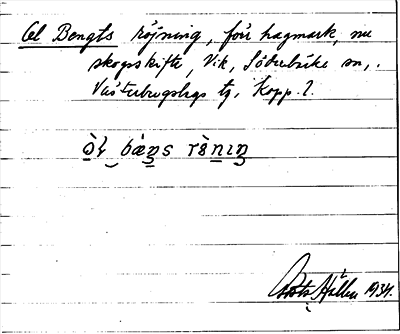 Ol Bengts röjning, förr hagmark, nu
skogsskifte, Vik, Söderbärke sn,.
Västerbergslags tg, Kopp. l.
Gösta Hállen 1934.